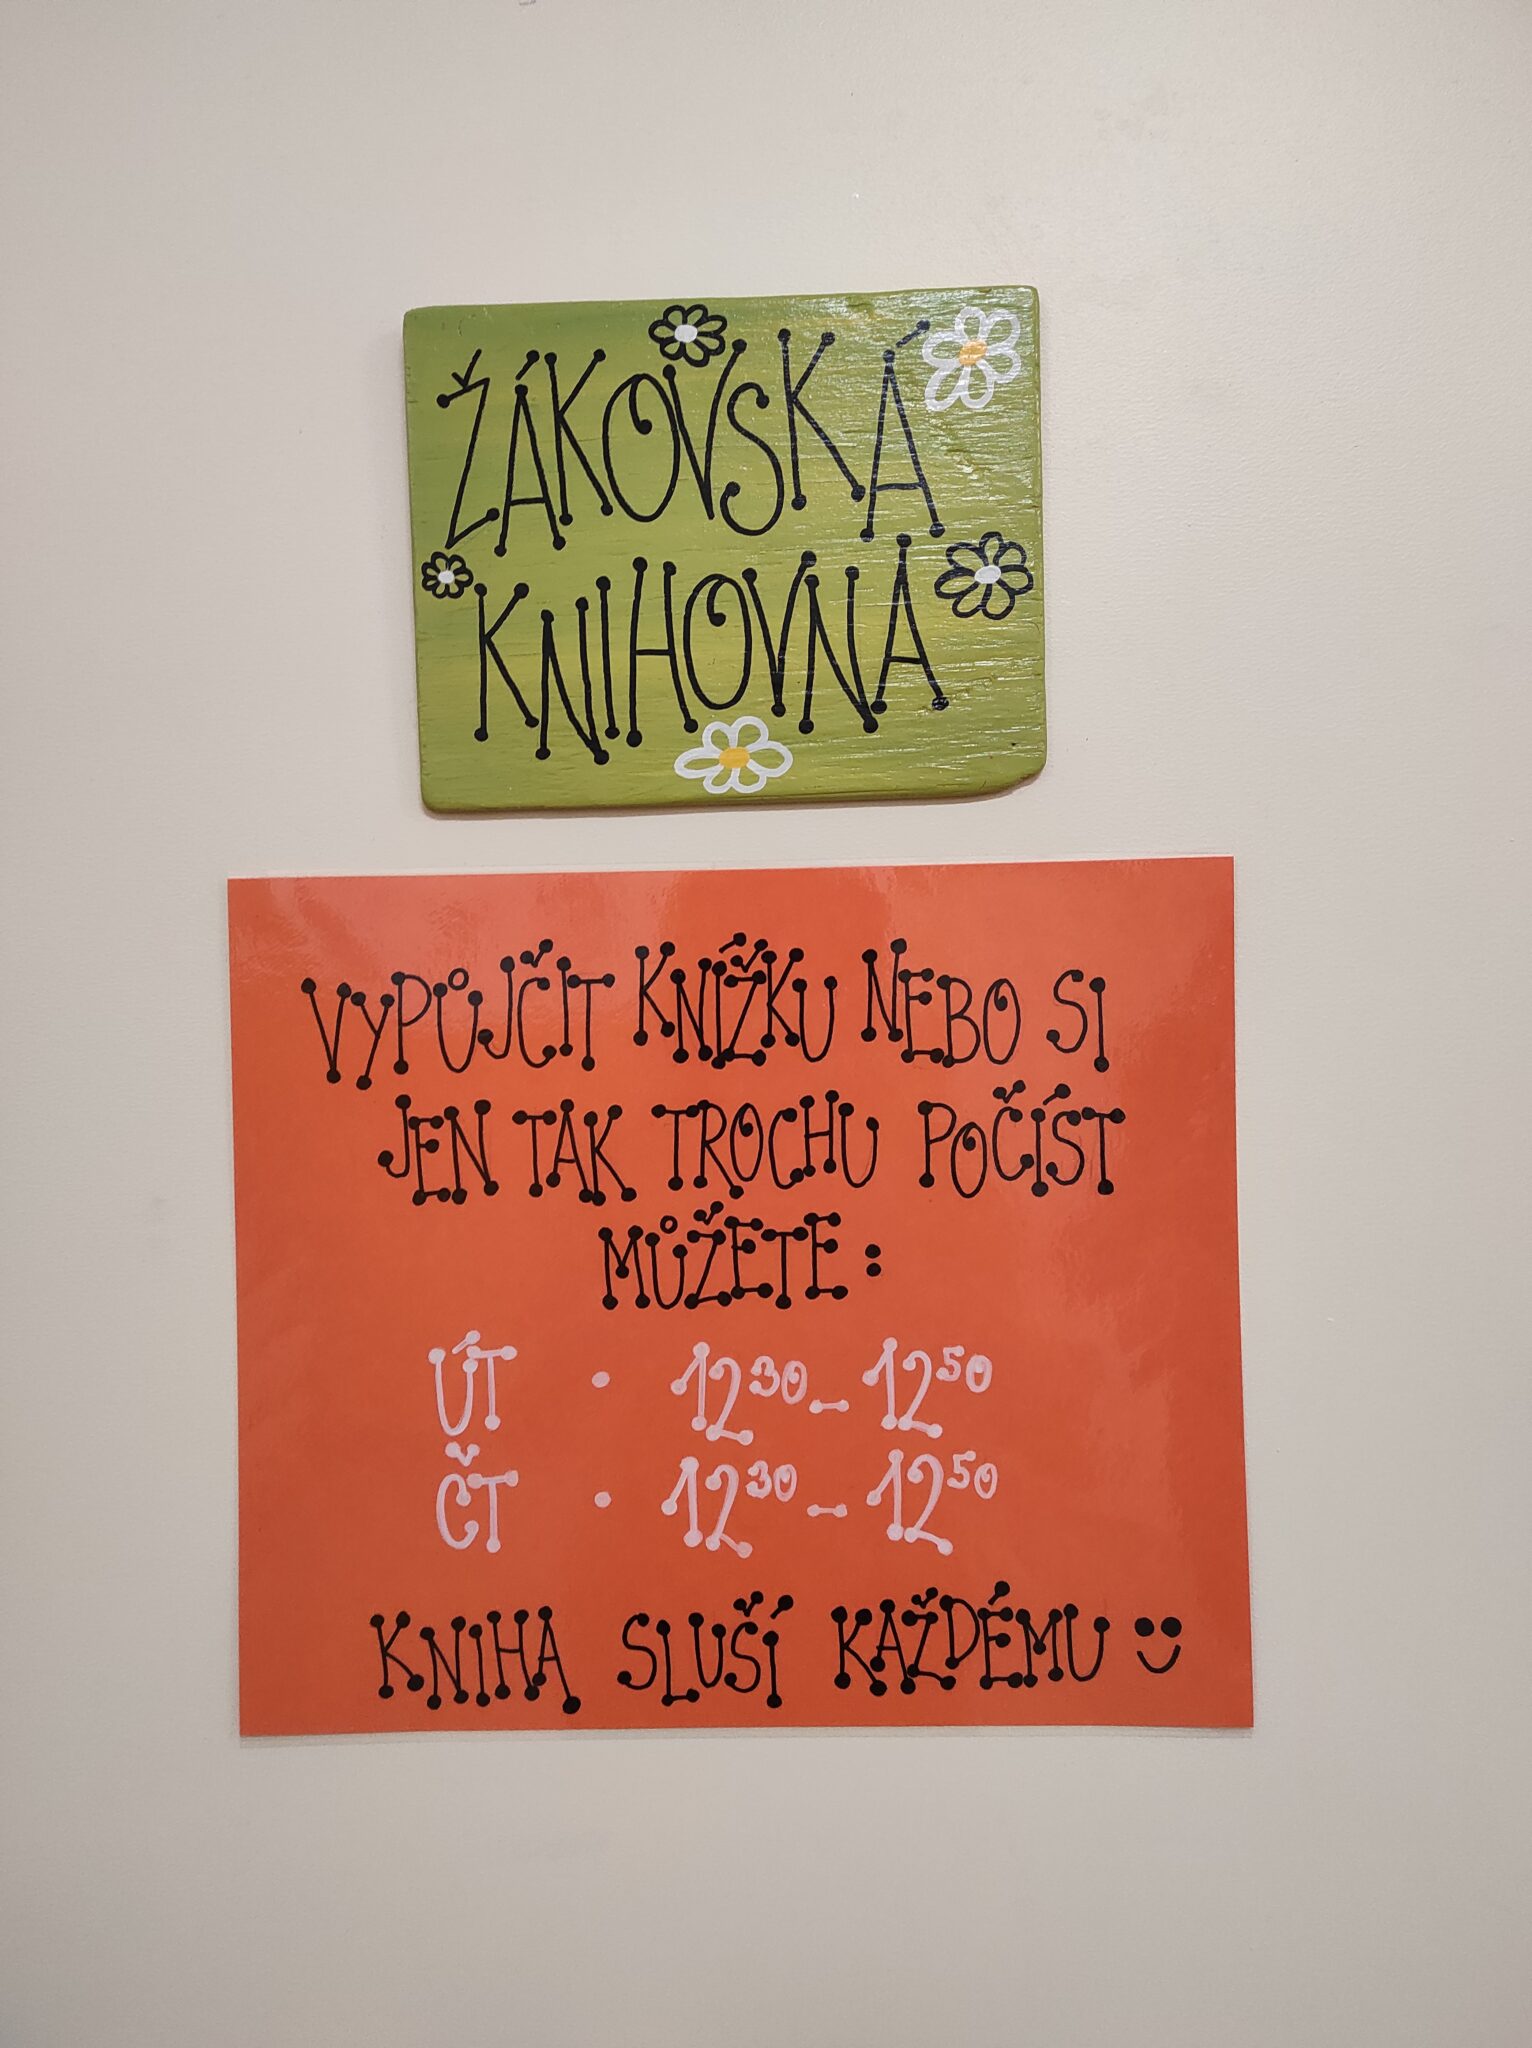 ŽÁKOVSKÁ
KNIHOVNA
VYPŮJČIT KNÍŽKU NEBO SI
JEN TAK TROCHU POČÍST
MŮŽETE:
ÚT · 12³⁰ - 12⁵⁰
ČT · 12³⁰ - 12⁵⁰
KNIHA SLUŠÍ KAŽDÉMU